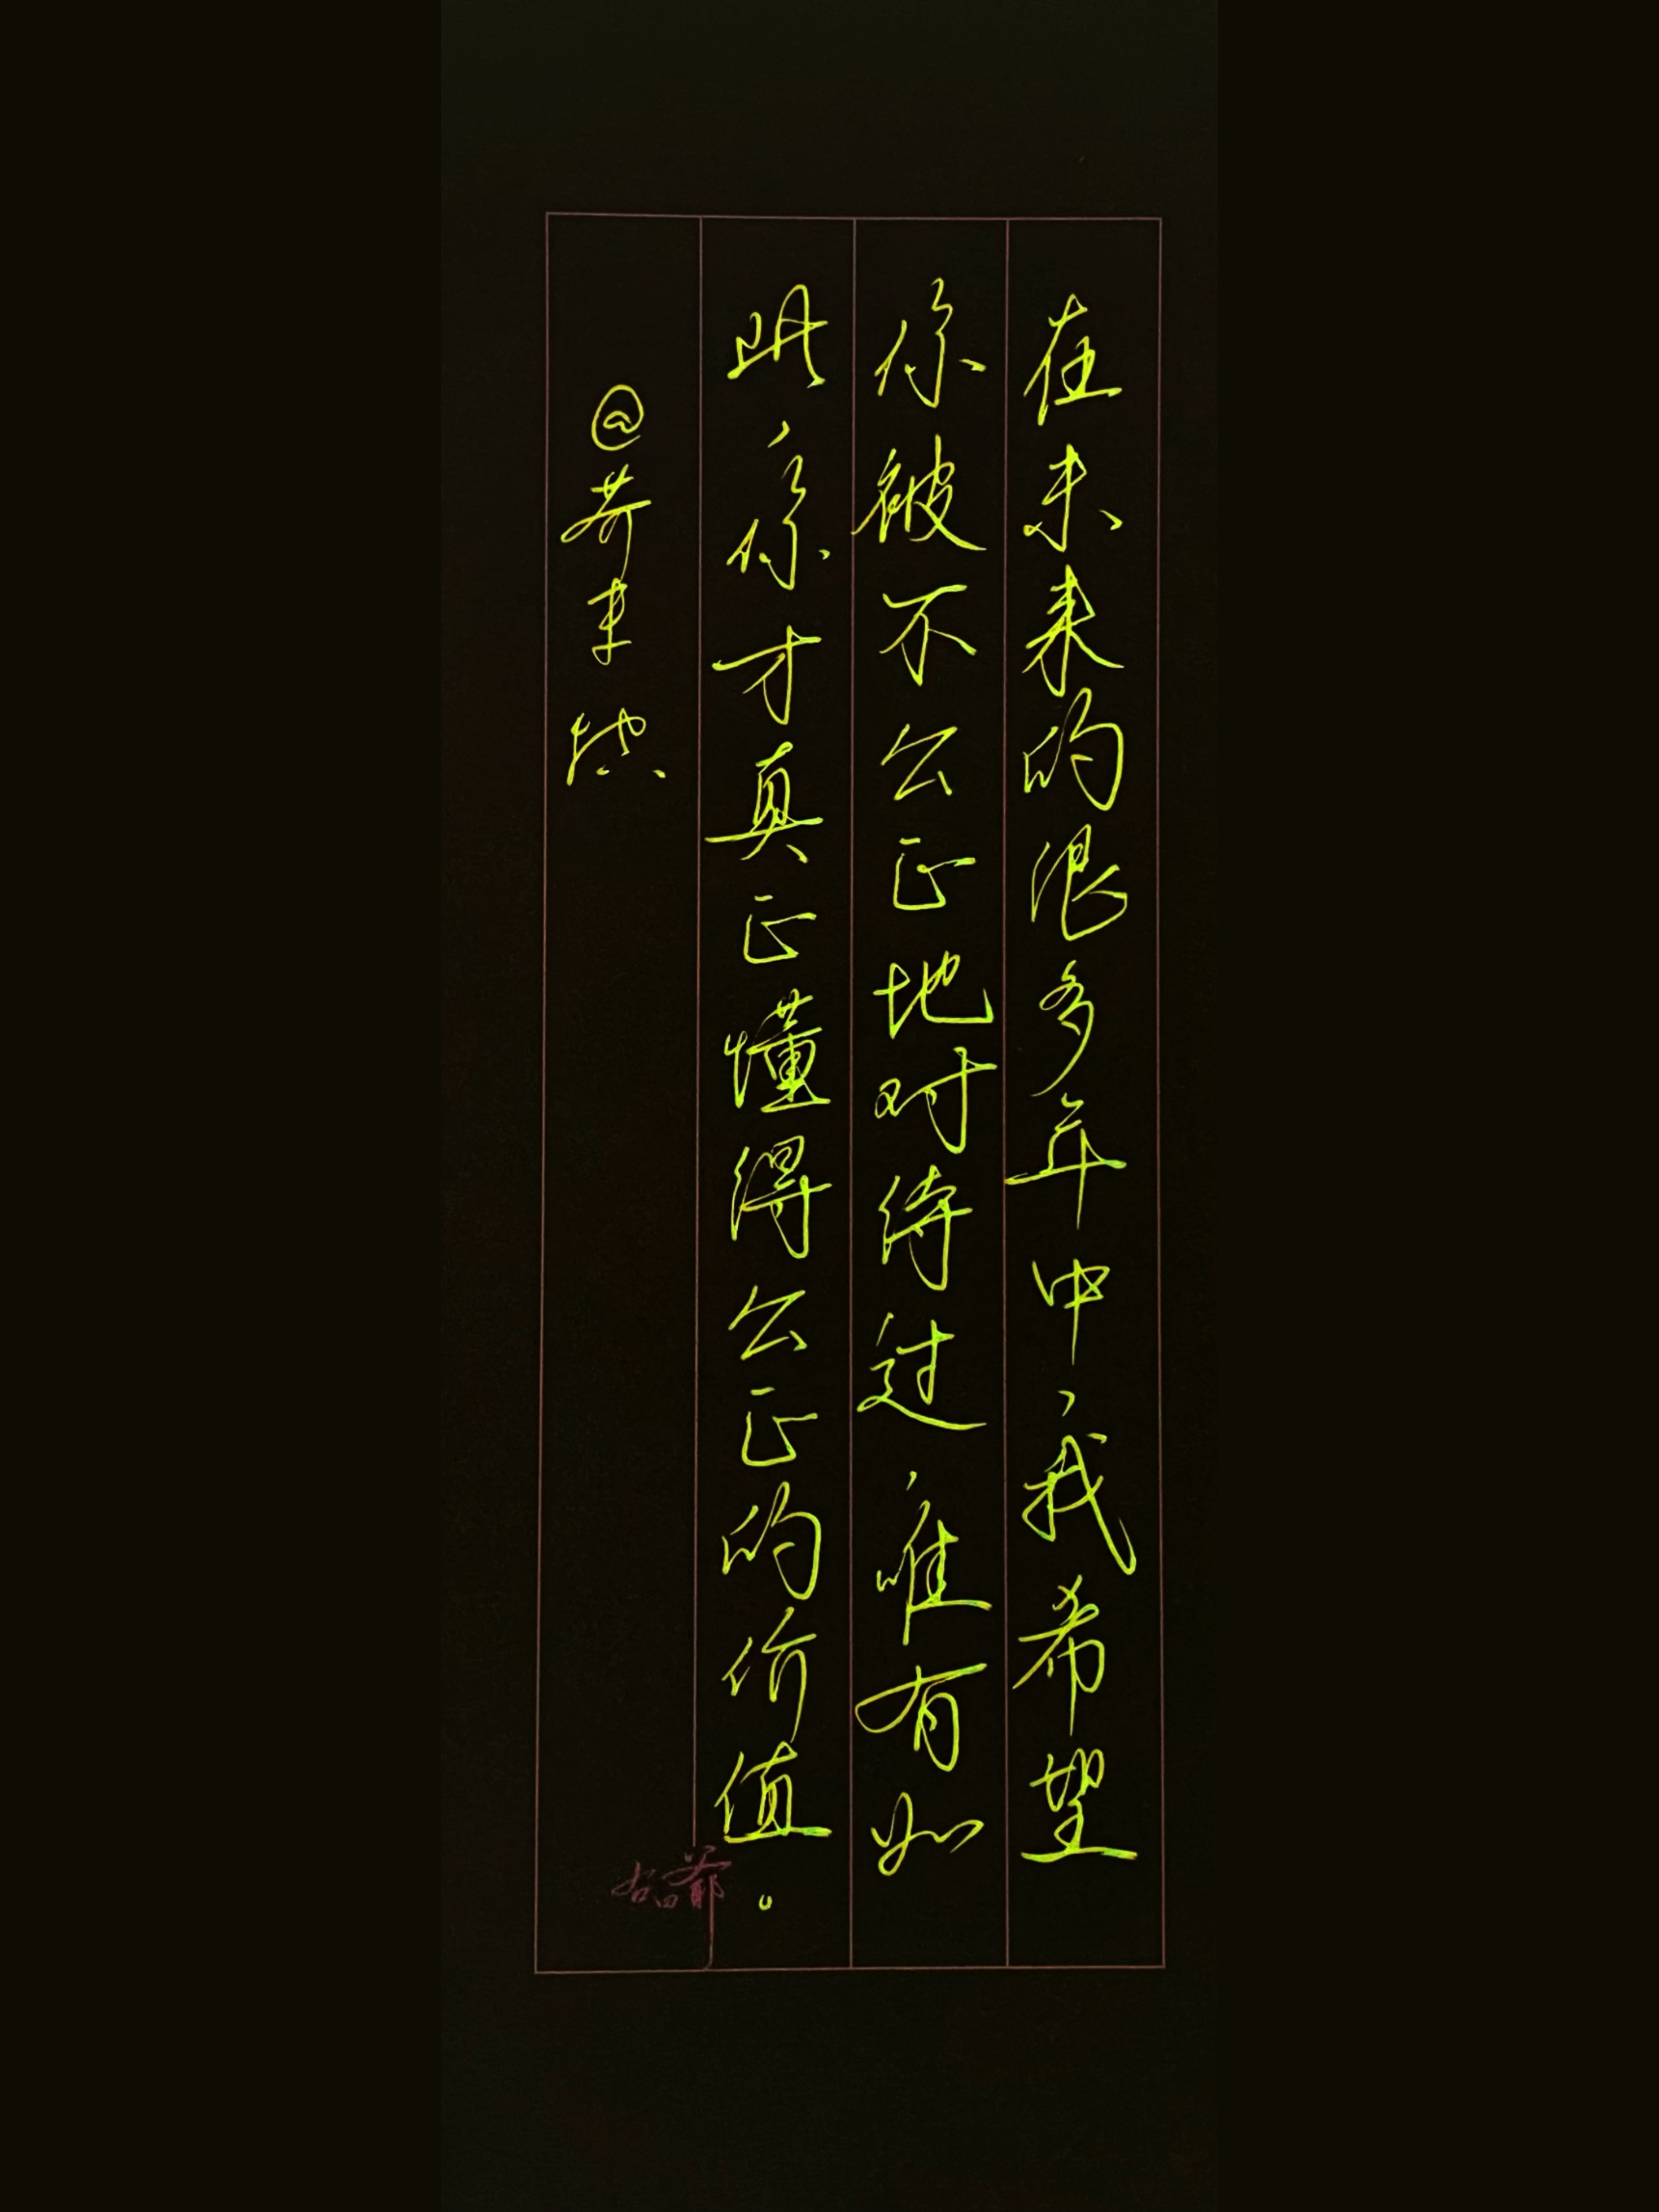 在未来的很多年中，我希望
你被不公正地对待过，唯有如
此，你才真正懂得公正的价值。